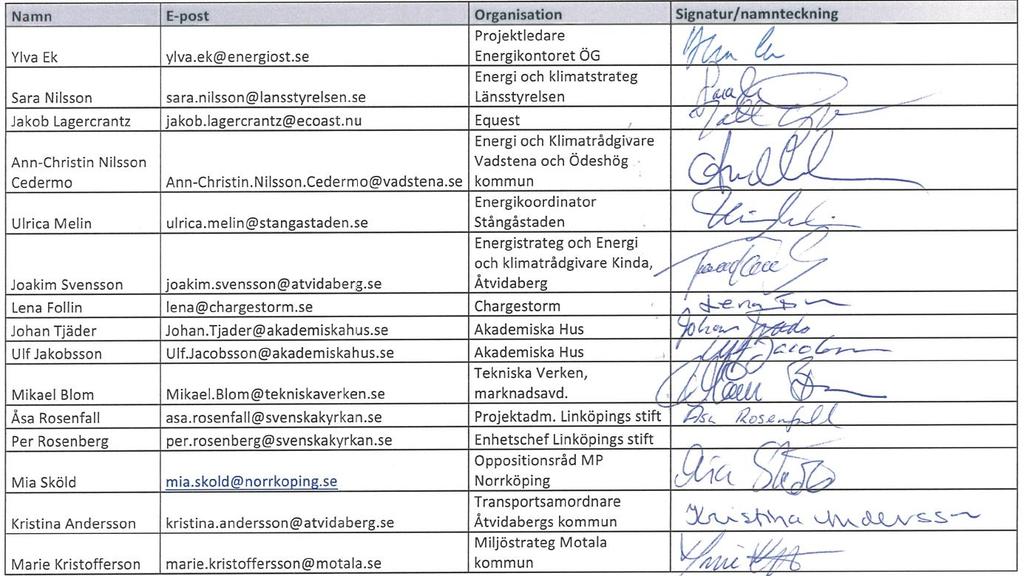 Namn E-post Organisation Signatur/namnteckning
Projektledare
Ylva Ek ylva.ek@energiost.se Energikontoret ÖG
Energi och klimatstrateg
Sara Nilsson sara.nilsson@lansstyrelsen.se Länsstyrelsen
Jakob Lagercrantz jakob.lagercrantz@ecoast.nu Equest
Energi och Klimatrådgivare
Ann-Christin Nilsson Vadstena och Ödeshög
Cedermo Ann-Christin.Nilsson.Cedermo@vadstena.se kommun
Energikoordinator
Ulrica Melin ulrica.melin@stangastaden.se Stångåstaden
Energistrateg och Energi
och klimatrådgivare Kinda,
Joakim Svensson joakim.svensson@atvidaberg.se Åtvidaberg
Lena Follin lena@chargestorm.se Chargestorm Lena
Johan Tjäder Johan.Tjader@akademiskahus.se Akademiska Hus Johan
Ulf Jakobsson Ulf.Jacobsson@akademiskahus.se Akademiska Hus Ulf
Tekniska Verken,
Mikael Blom Mikael.Blom@tekniskaverken.se marknadsavd.
Åsa Rosenfall asa.rosenfall@svenskakyrkan.se Projektadm. Linköpings stift Åsa Rosenfall
Per Rosenberg per.rosenberg@svenskakyrkan.se Enhetschef Linköpings stift
Oppositionsråd MP
Mia Sköld mia.skold@norrkoping.se Norrköping
Transportsamordnare
Kristina Andersson kristina.andersson@atvidaberg.se Åtvidabergs kommun Kristina Andersson
Miljöstrateg Motala
Marie Kristofferson marie.kristofferson@motala.se kommun